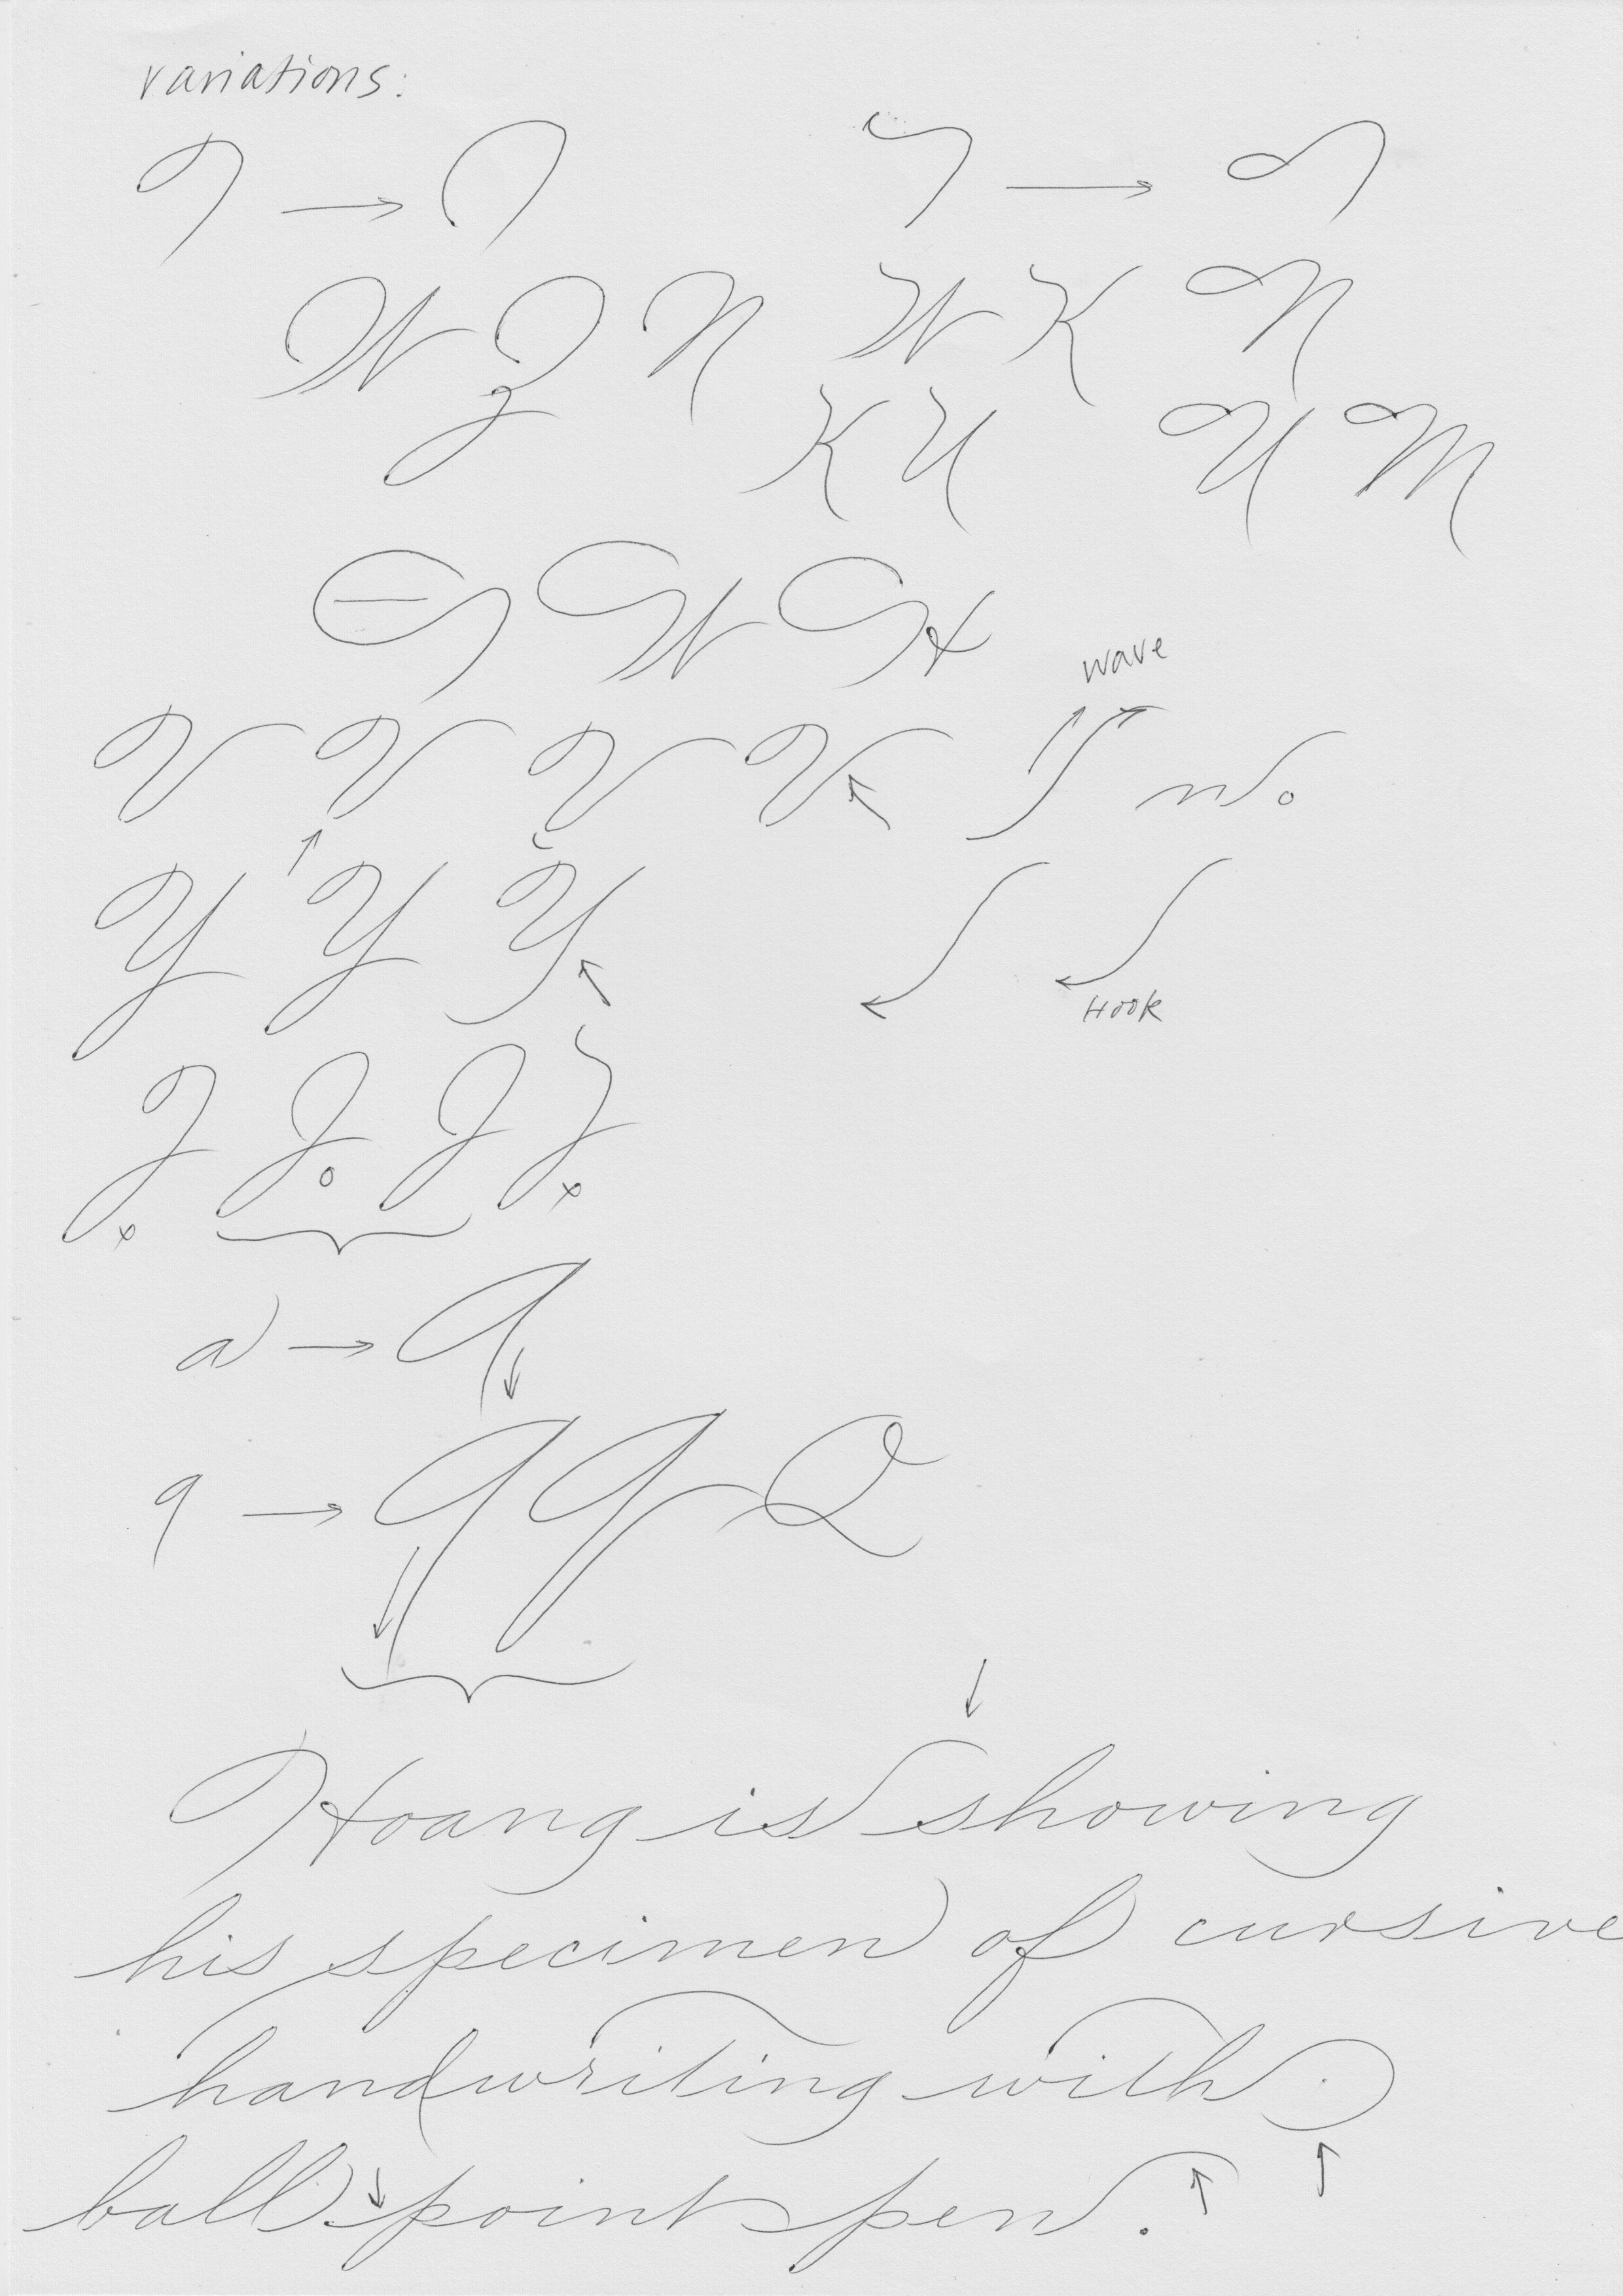 variations:
W Z N W K N
K U U M
W H
wave
V V V V n.
Y Y Y
Hook
J J J J
a → A
q → q q Q
Hoang is showing
his specimen of cursive
handwriting with
ball-point pen.